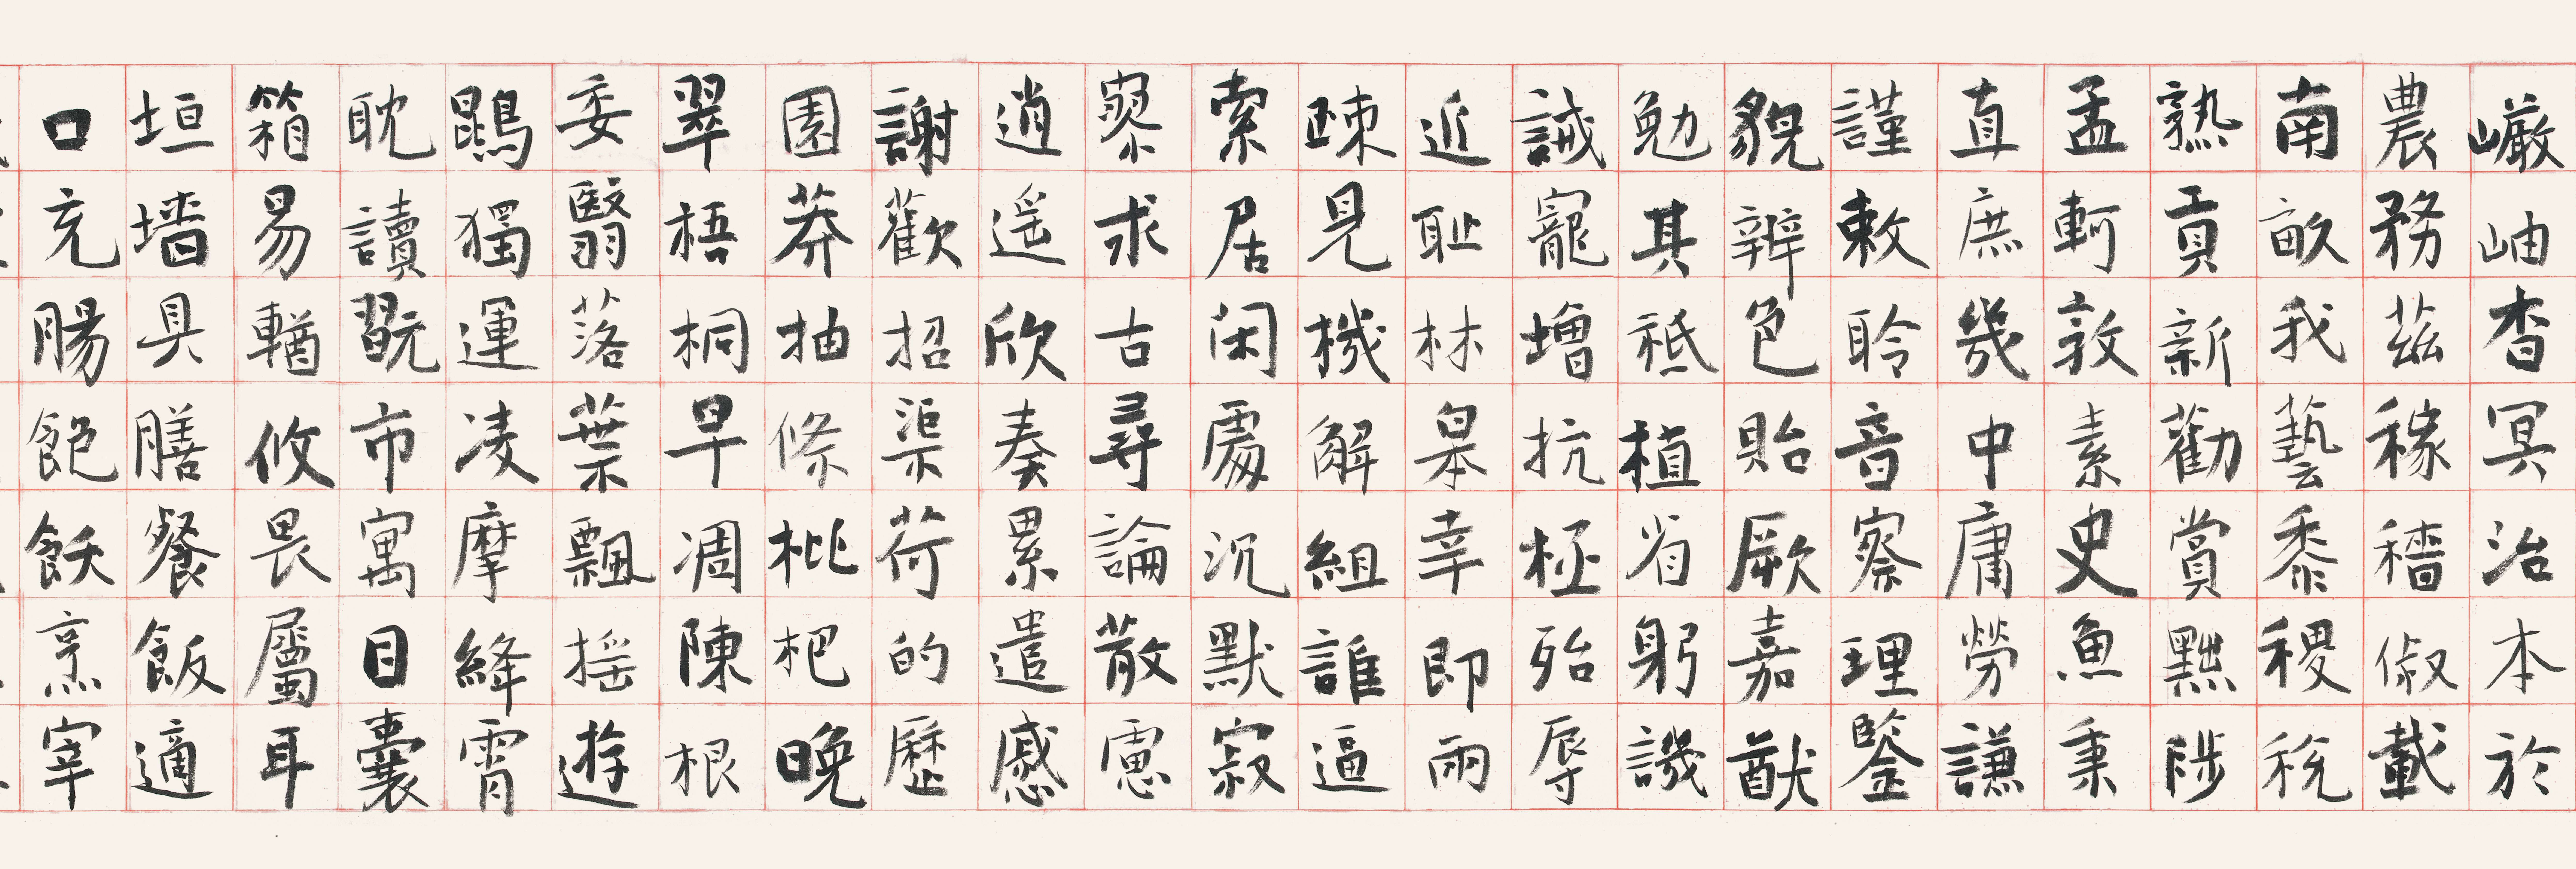 巖岫杳冥治本於
農務茲稼穡俶載
南畝我藝黍稷稅
熟貢新勸賞黜陟
孟軻敦素史魚秉
直庶幾中庸勞謙
謹敕聆音察理鑒
貌辨色貽厥嘉猷
勉其祗植省躬譏
誡寵增抗極殆辱
近耻林皋幸即兩
疎見機解組誰逼
索居閑處沉默寂
寥求古尋論散慮
逍遙欣奏累遣慼
謝歡招渠荷的歷
園莽抽條枇杷晚
翠梧桐早凋陳根
委翳落葉飄搖遊
鵾獨運凌摩絳霄
耽讀翫市寓目囊
箱易輶攸畏屬耳
垣墻具膳餐飯適
口充腸飽飫烹宰